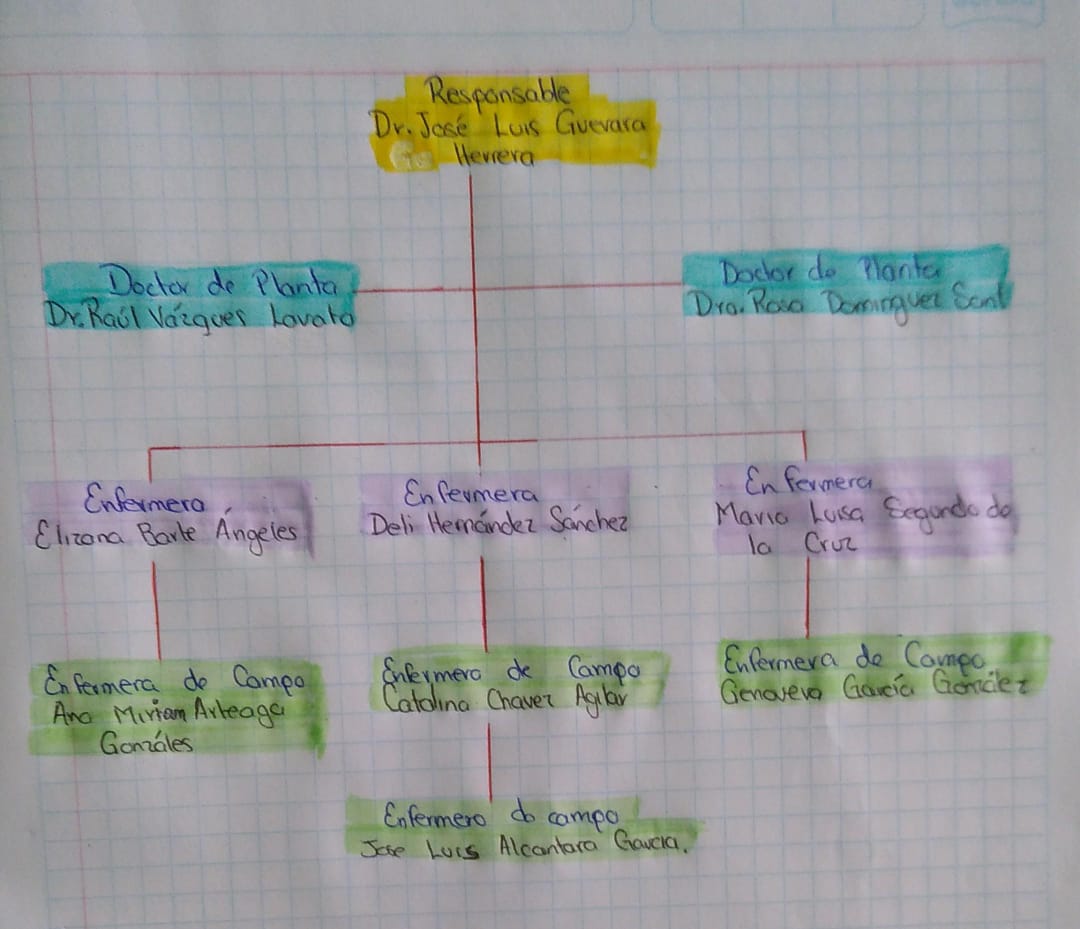 Responsable
Dr. José Luis Guevara
Herrera
Doctor de Planta
Dr. Raúl Vázques Lovato
Doctor de Planta
Dra. Rosa Dominguez Sant
Enfermera
Elizana Barte Ángeles
Enfermera
Deli Hernández Sánchez
Enfermera
Maria Luisa Segundo de
la Cruz
Enfermera de Campo
Ana Miriam Arteaga
Gonzáles
Enfermera de Campo
Catalina Chavez Agilar
Enfermera de Campo
Genoveva García González
Enfermero de campo
Jose Luis Alcantara Garcia.